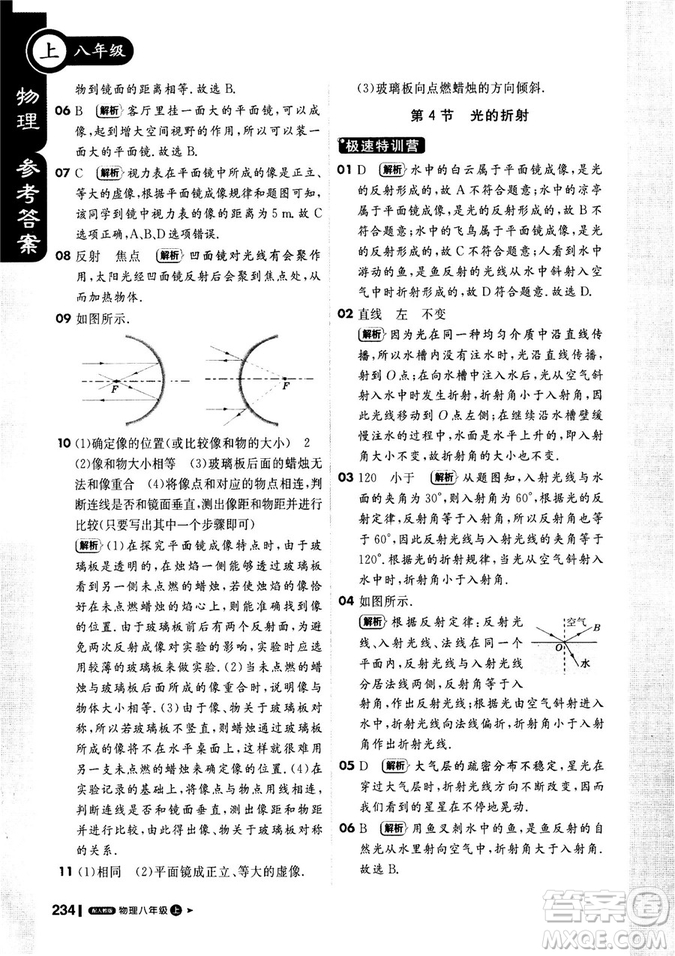 上 八年级
物理 参考答案
物到镜面的距离相等.故选 B.
06 B 解析 客厅里挂一面大的平面镜,可以起到
增大空间视野的作用,所以最主要的目的是利
用平面镜成像来扩大视野空间.故选 B.
07 C 解析 视力表在平面镜中所成的像是正立、
等大的虚像,根据平面镜成像规律和题图可知,
该同学到镜中视力表的像的距离为 5 m.故 C
选项正确,A、B、D 选项错误.
08 反射 焦点 解析 凹面镜对光线有会聚作
用,太阳光经凹面镜反射后会聚到焦点处,从
而加热物体.
09 如图所示.
F
F
10 (1)确定像的位置(或比较像和物的大小) 2
(2)像和物大小相等 (3)玻璃板后面的蜡烛无
法和像重合 (4)将像点和对应的物点相连,判
断连线是否和镜面垂直,测出像距和物距并进行
比较(只要写出其中一个步骤即可)
解析 (1)在探究平面镜成像特点时,由于玻
璃板是透明的,在烛焰一侧能看到烛焰的像和
另一侧未点燃的蜡烛,若使烛焰的像
与未点燃蜡烛的焰心上,则可以确定像的
位置.由于玻璃板有两个反射面,为了避
免两次成像对实验的影响,实验时应
选用较薄的玻璃板做实验.(2)前后移动的蜡
烛与玻璃板中所成的像重合时,说明像与
物体大小相等.(3)物与像关于玻璃板对
称,所以若玻璃板不竖直,则无论怎样
都不会在水平桌面上,即不能完全重合.(4)在
实验记录的基础上,可以判断像、物对应点
的连线与镜面是否垂直,测出像距和物距
并进行比较,得出像、物关于玻璃板对称
的关系.
11 (1)相同 (2)平面镜成正立、等大的虚像.
(3)玻璃板向点燃蜡烛的方向倾斜.
第 4 节 光的折射
极速特训营
01 D 解析 水中的白云属于平面镜成像,是光
的反射形成的,故 A 不符合题意;水中的凉亭
属于平面镜成像,是光的反射形成的,故 B 不
符合题意;水中的飞鸟属于平面镜成像,是光
的反射形成的,故 C 不符合题意;看到水中
游动的鱼,是鱼反射的光线从水中斜射入空
气中时发生折射形成的,故 D 符合题意.故选 D.
02 直线 左 不变
解析 因为光在同一种均匀介质中沿直线传
播,所以水槽内没有注水时,光沿直线传播,
所以照射到 O 点;在水槽中注水后,光从空气斜
射入水中时发生折射,折射角小于入射角,因
此光线移动到 O 点左侧;在继续沿水槽壁缓
慢注水的过程中,由于入射角大小不变,故折
射角大小不变.
03 120 小于 解析 从题图知,入射光线与水
面的夹角为 30°,则入射角为 60°,根据光的反
射定律,反射角等于入射角,所以反射角为
60°,则反射光线与入射光线的夹角等于
120°.根据光的折射规律,当光从空气斜射入
水中时,折射角小于入射角.
04 如图所示.
解析 根据反射定律:反射光
线、入射光线、法线在同一个
平面内,反射光线与入射光线
分居法线两侧,反射角等于入
射角,作出反射光线;根据光由空气斜射入水
中时,折射光线向法线偏折,折射角小于入
射角,作出折射光线.
空气 B O 水
05 D 解析 大气层的疏密分布不稳定,星光在
穿过大气层时,折射光线方向不断改变,因
此我们看到的星星在不停地晃动.
06 B 解析 用鱼叉刺水中的鱼,是鱼反射的光
从水中斜射入空气中,发生折射,
故选 B.
234 配人教版 物理八年级 上
答案圈
MXQE.COM